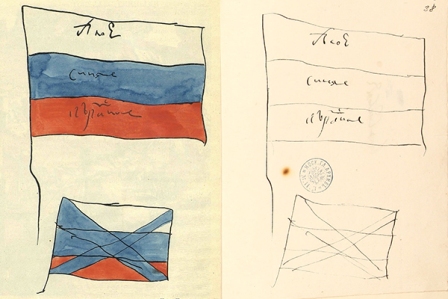 белоЕ
синее
красное
38
белоЕ
синее
красное